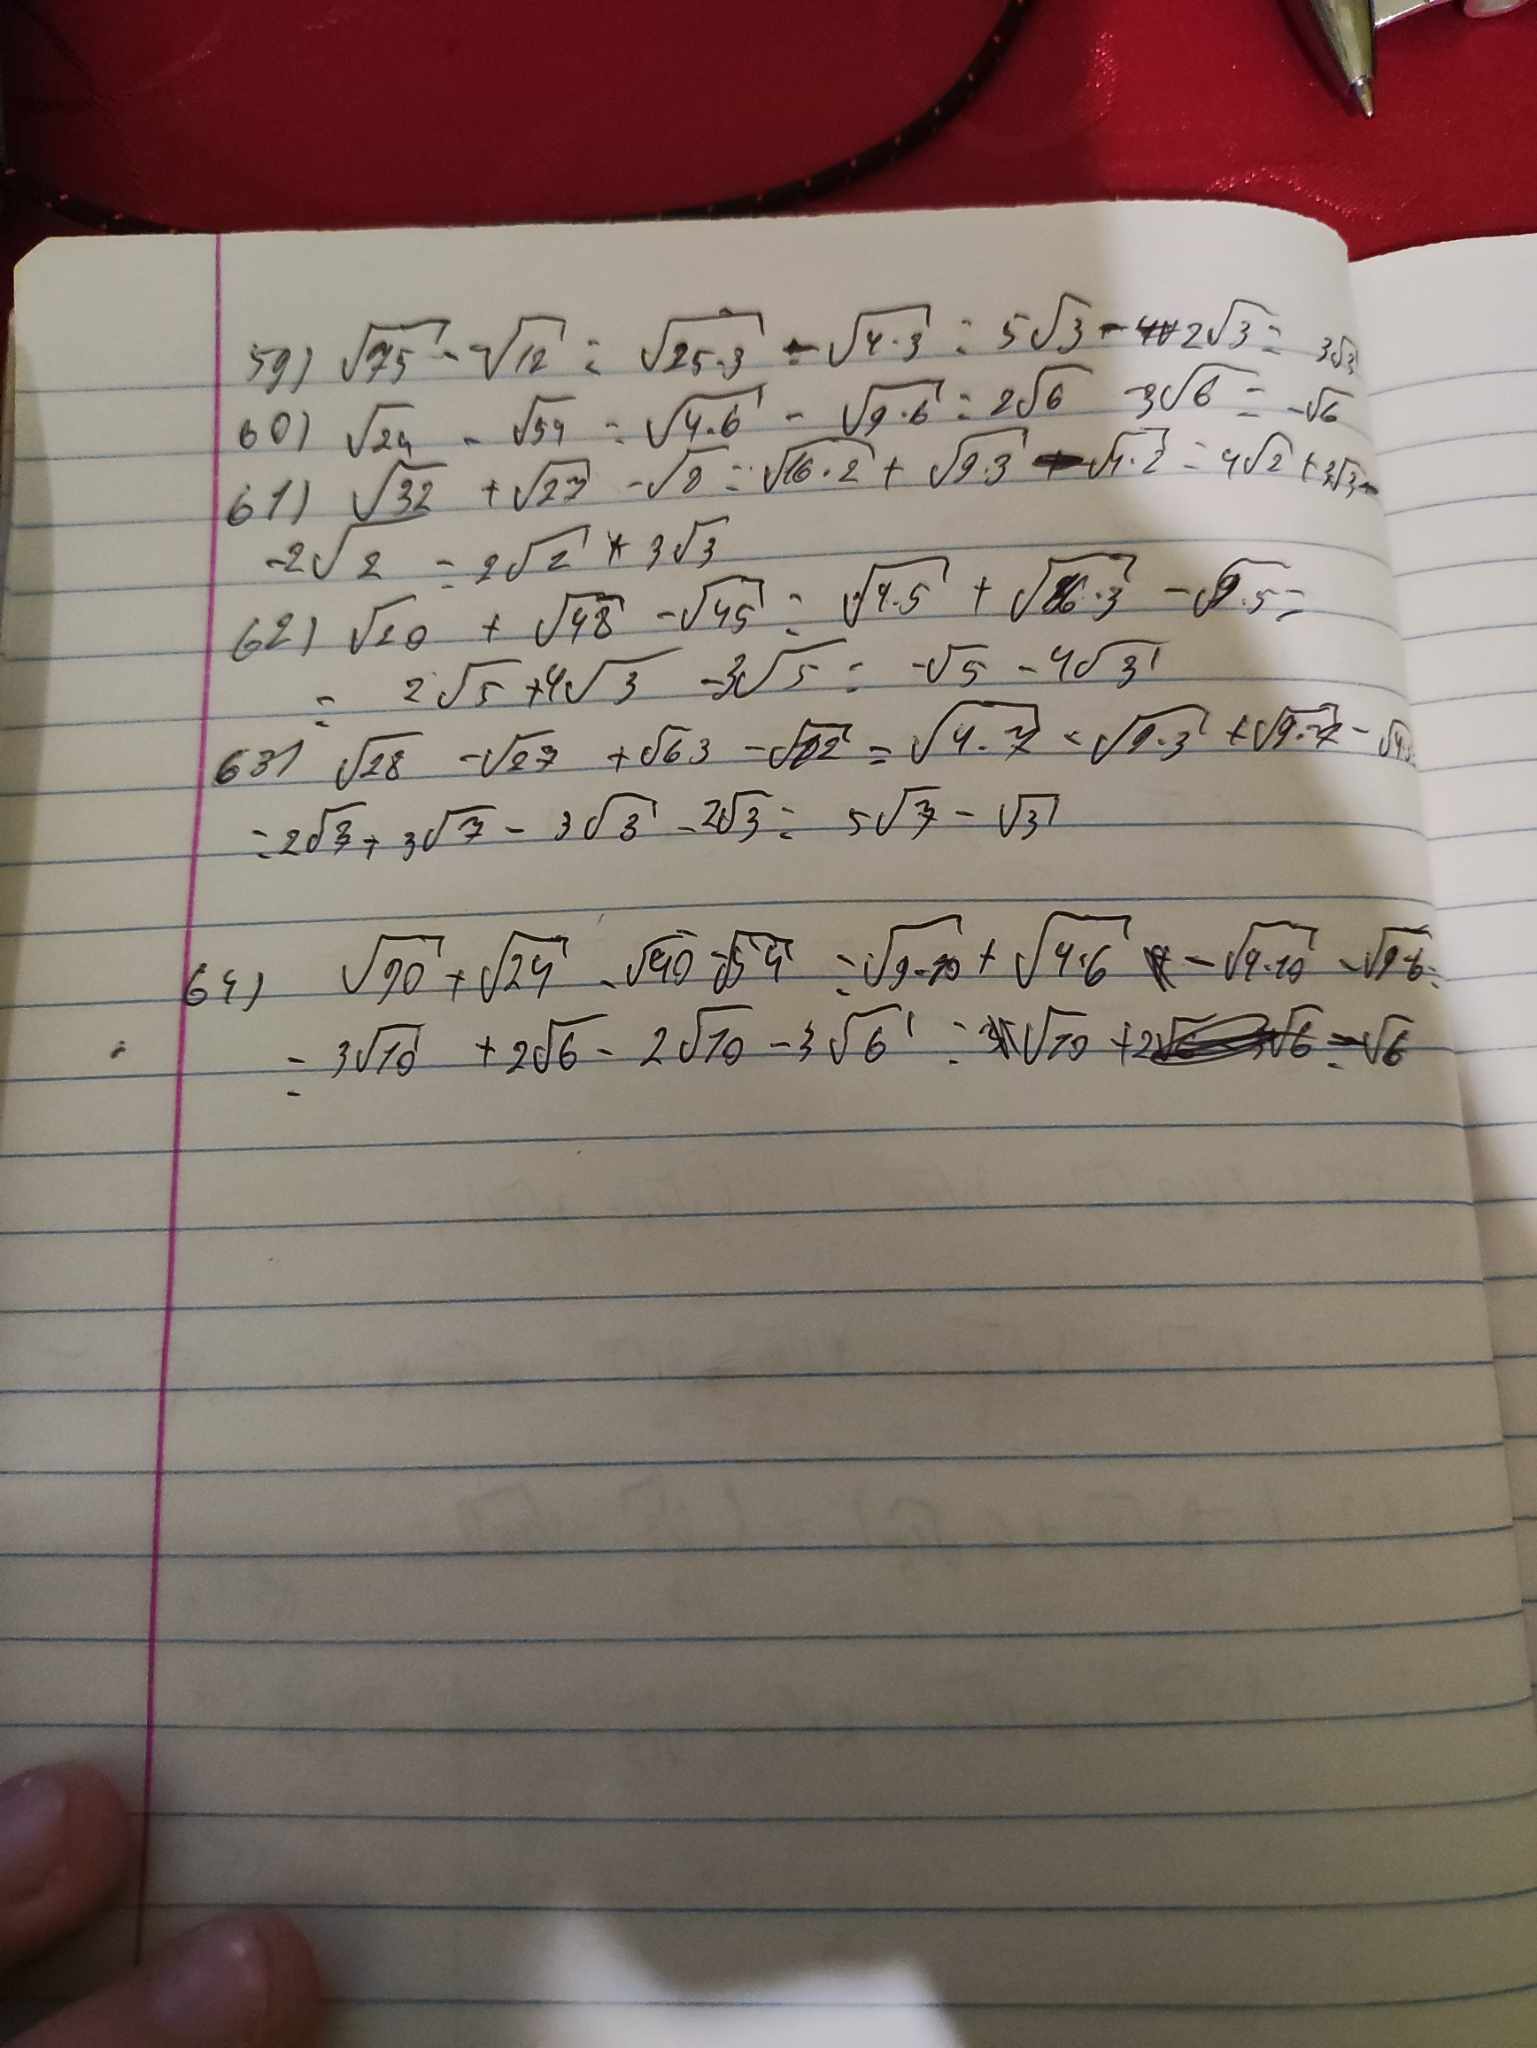 59) √75 - √12 = √25·3 - √4·3 = 5√3 - 2√3 = 3√3
60) √24 - √54 = √4·6 - √9·6 = 2√6 - 3√6 = -√6
61) √32 + √27 - √8 = √16·2 + √9·3 - √4·2 = 4√2 + 3√3 -
-2√2 = 2√2 + 3√3
62) √20 + √48 - √45 = √4·5 + √16·3 - √9·5 =
= 2√5 + 4√3 - 3√5 = -√5 - 4√3
63) √28 - √27 + √63 - √12 = √4·7 - √9·3 + √9·7 - √4·3
= 2√7 + 3√7 - 3√3 - 2√3 = 5√7 - √3
64) √90 + √24 - √40 - √54 = √9·10 + √4·6 - √4·10 - √9·6 =
= 3√10 + 2√6 - 2√10 - 3√6 = √10 + 2√6 = -√6